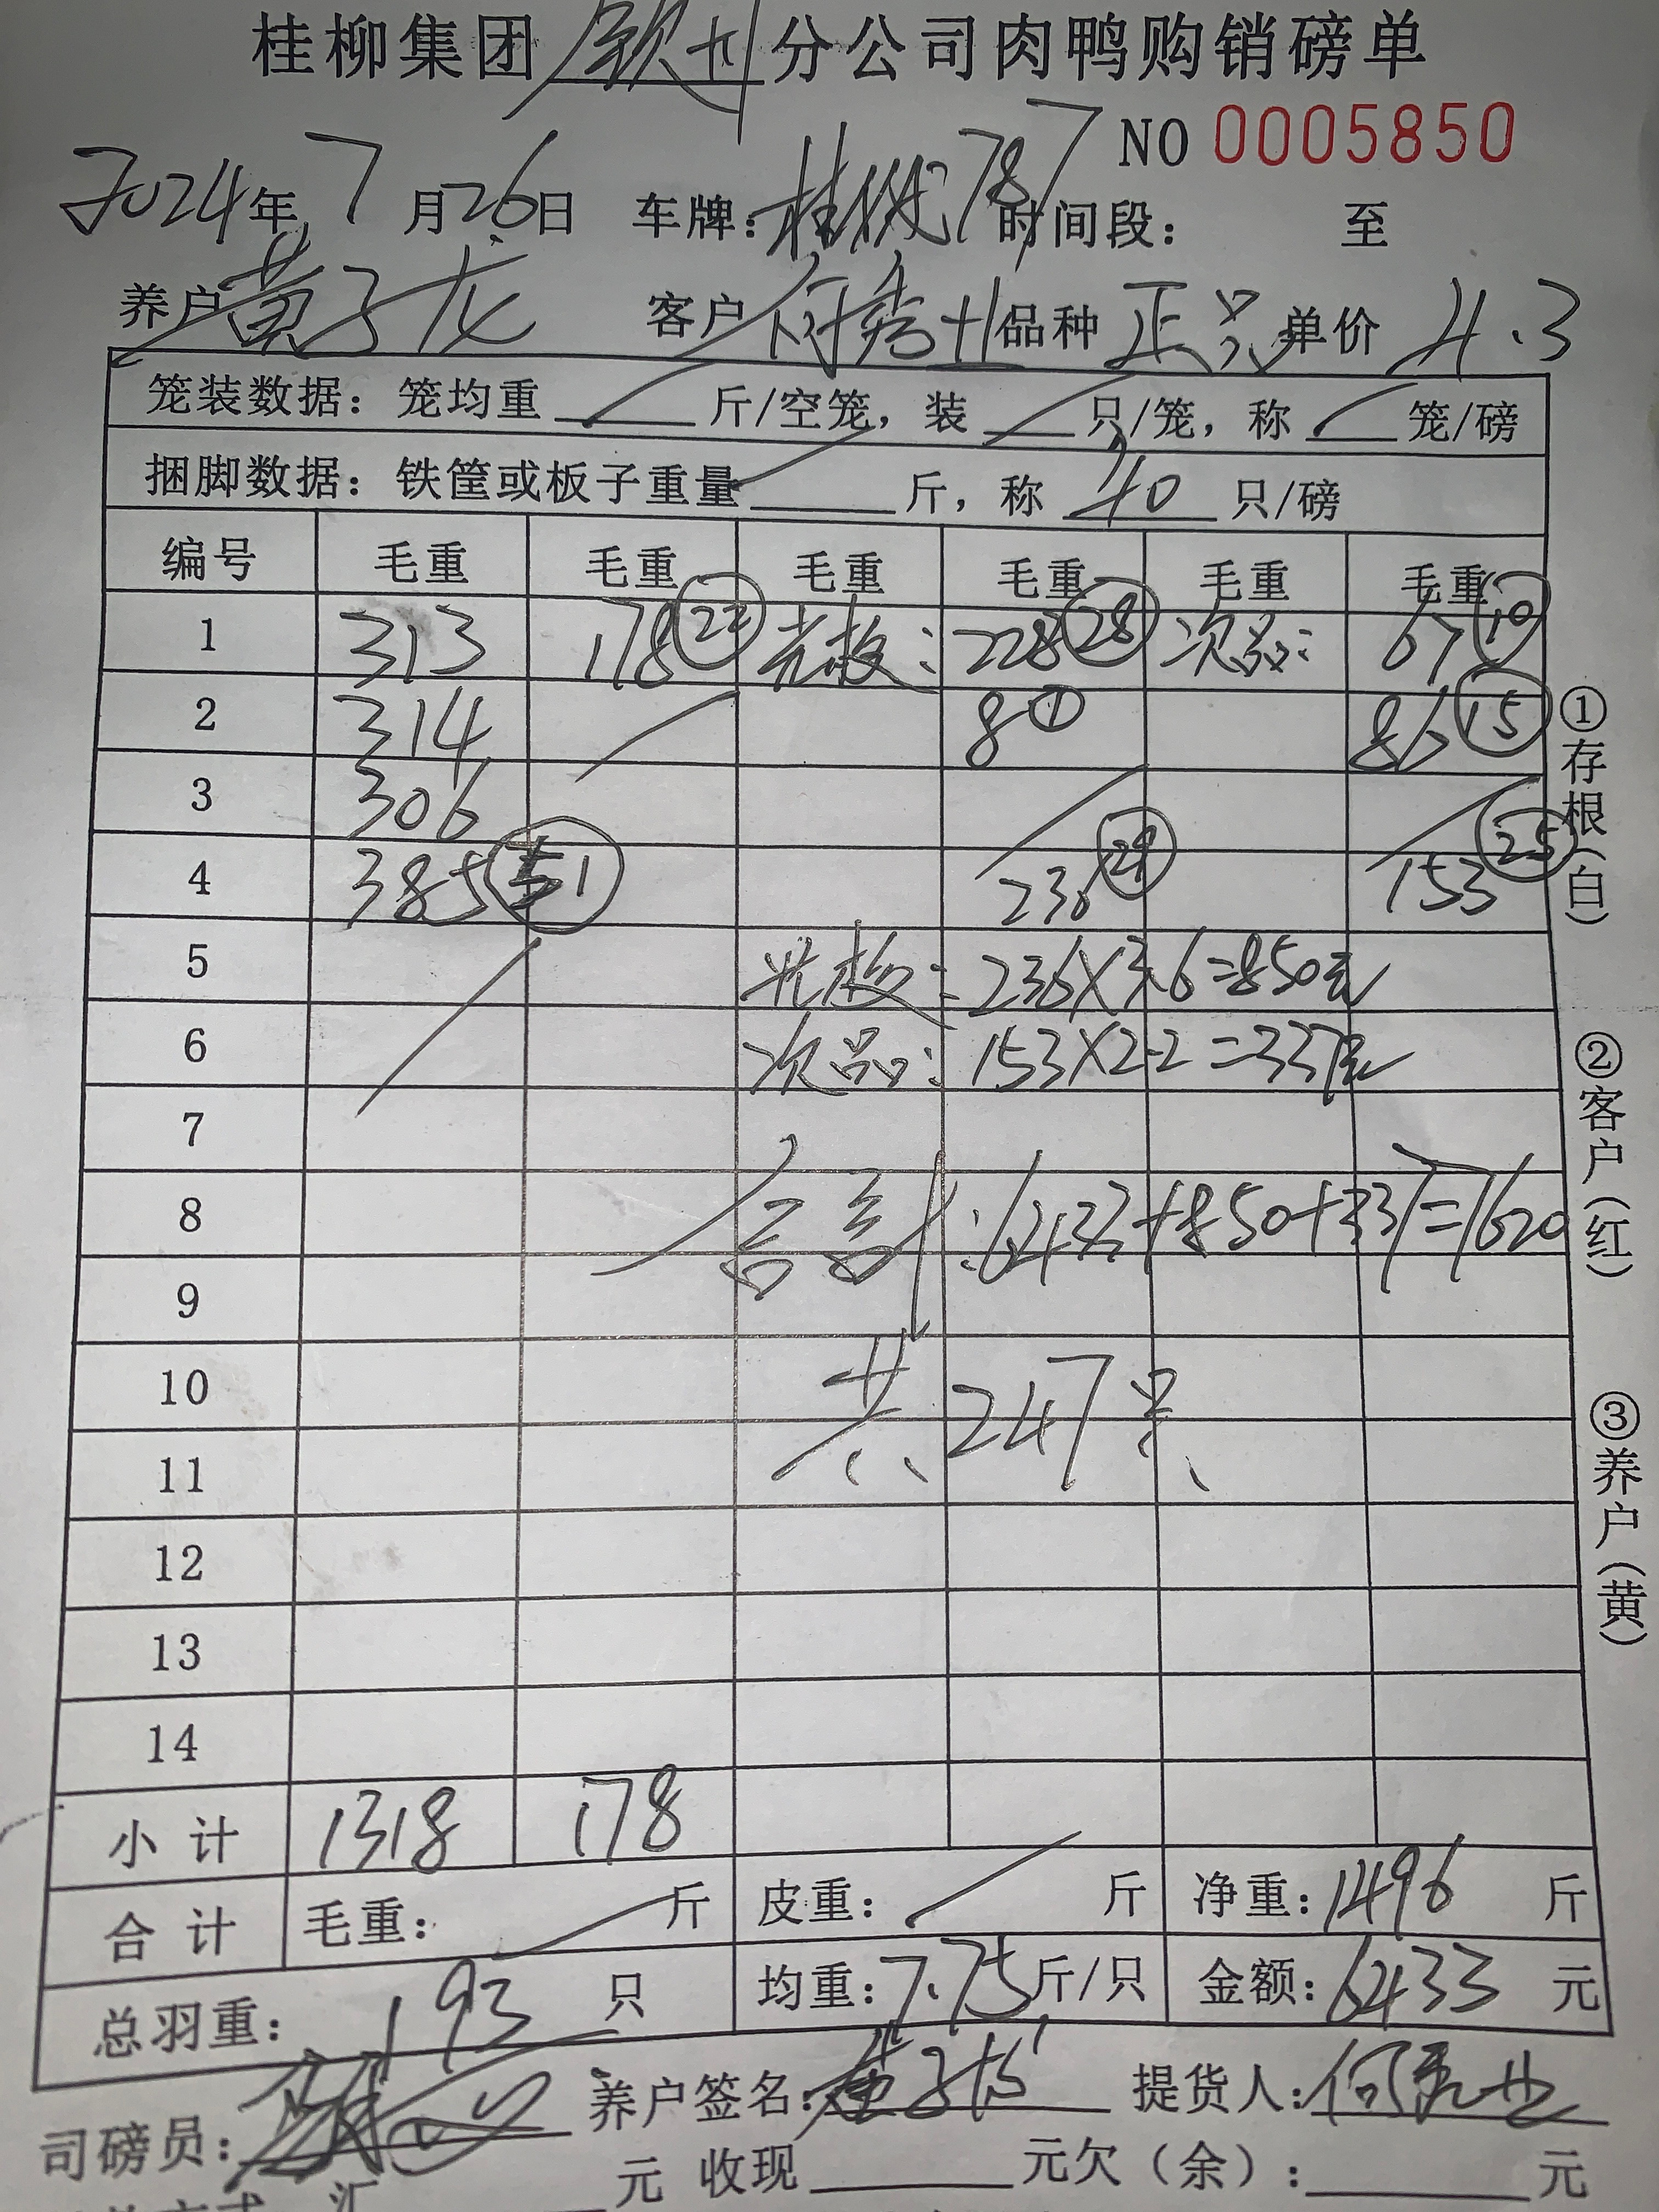 桂柳集团钦州分公司肉鸭购销磅单
NO 0005850
2024年7月26日 车牌:桂 787 时间段: 至
养户 黄子龙 客户 何秀士 品种 正只 单价 4.3
笼装数据:笼均重 斤/空笼,装 只/笼,称 笼/磅
捆脚数据:铁筐或板子重量 斤,称 40 只/磅
编号 毛重 毛重 毛重 毛重 毛重 毛重
1 313 178 22 光板: 228 28 次品: 67 10
2 314 8 1 86 15
3 306
4 385 51 236 29 153 25
5 光板:236×3.6=850元
6 次品:153×2.2=337元
7
8 合计:6433+850+337=7620
9
10 共247只
11
12
13
14
小计 1318 178
合计 毛重: 斤 皮重: 斤 净重:1496 斤
总羽重: 193 只 均重:7.75斤/只 金额:6433 元
司磅员: 养户签名:黄子龙 提货人:何秀士
元 收现 元欠(余): 元
①存根(白)
②客户(红)
③养户(黄)